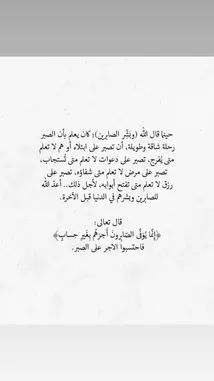 حينما قال الله (وبشّر الصابرين)؛ كان يعلم بأن الصبر
رحلة شاقة وطويلة، أن تصبر على ابتلاء أو هم لا تعلم
متى يُفرج، تصبر على دعوات لا تعلم متى تُستجاب،
تصبر على مرض لا تعلم متى شفاؤه، تصبر على
رزق لا تعلم متى تفتح أبوابه، لأجل ذلك.. أعدّ الله
للصابرين وبشرهم في الدنيا قبل الآخرة.
قال تعالى:
﴿إِنَّمَا يُوَفَّى الصَّابِرُونَ أَجْرَهُم بِغَيْرِ حِسَابٍ﴾
فاحتسبوا الاجر على الصبر.